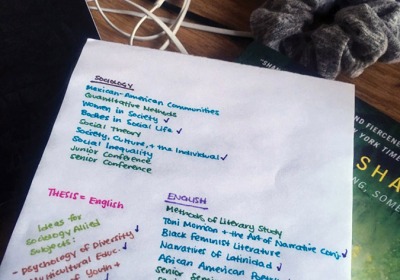 SOCIOLOGY
Mexican-American Communities
Quantitative Methods
Women in Society ✓
Bodies in Social Life ✓
Social Theory
Society, Culture, + the Individual ✓
Social Inequality
Junior Conference
Senior Conference
THESIS = English
Ideas for
Sociology Allied
Subjects:
- Psychology of Diversity
Multicultural Educ.
of Youth +
ENGLISH
Methods of Literary Study
Toni Morrison + the Art of Narrative Conj. ✓
Black Feminist Literature
Narratives of Latinidad ✓
African American
Senior
"SHA
AND FIERCENE
YORK TIMES
SHA
NG, SOME